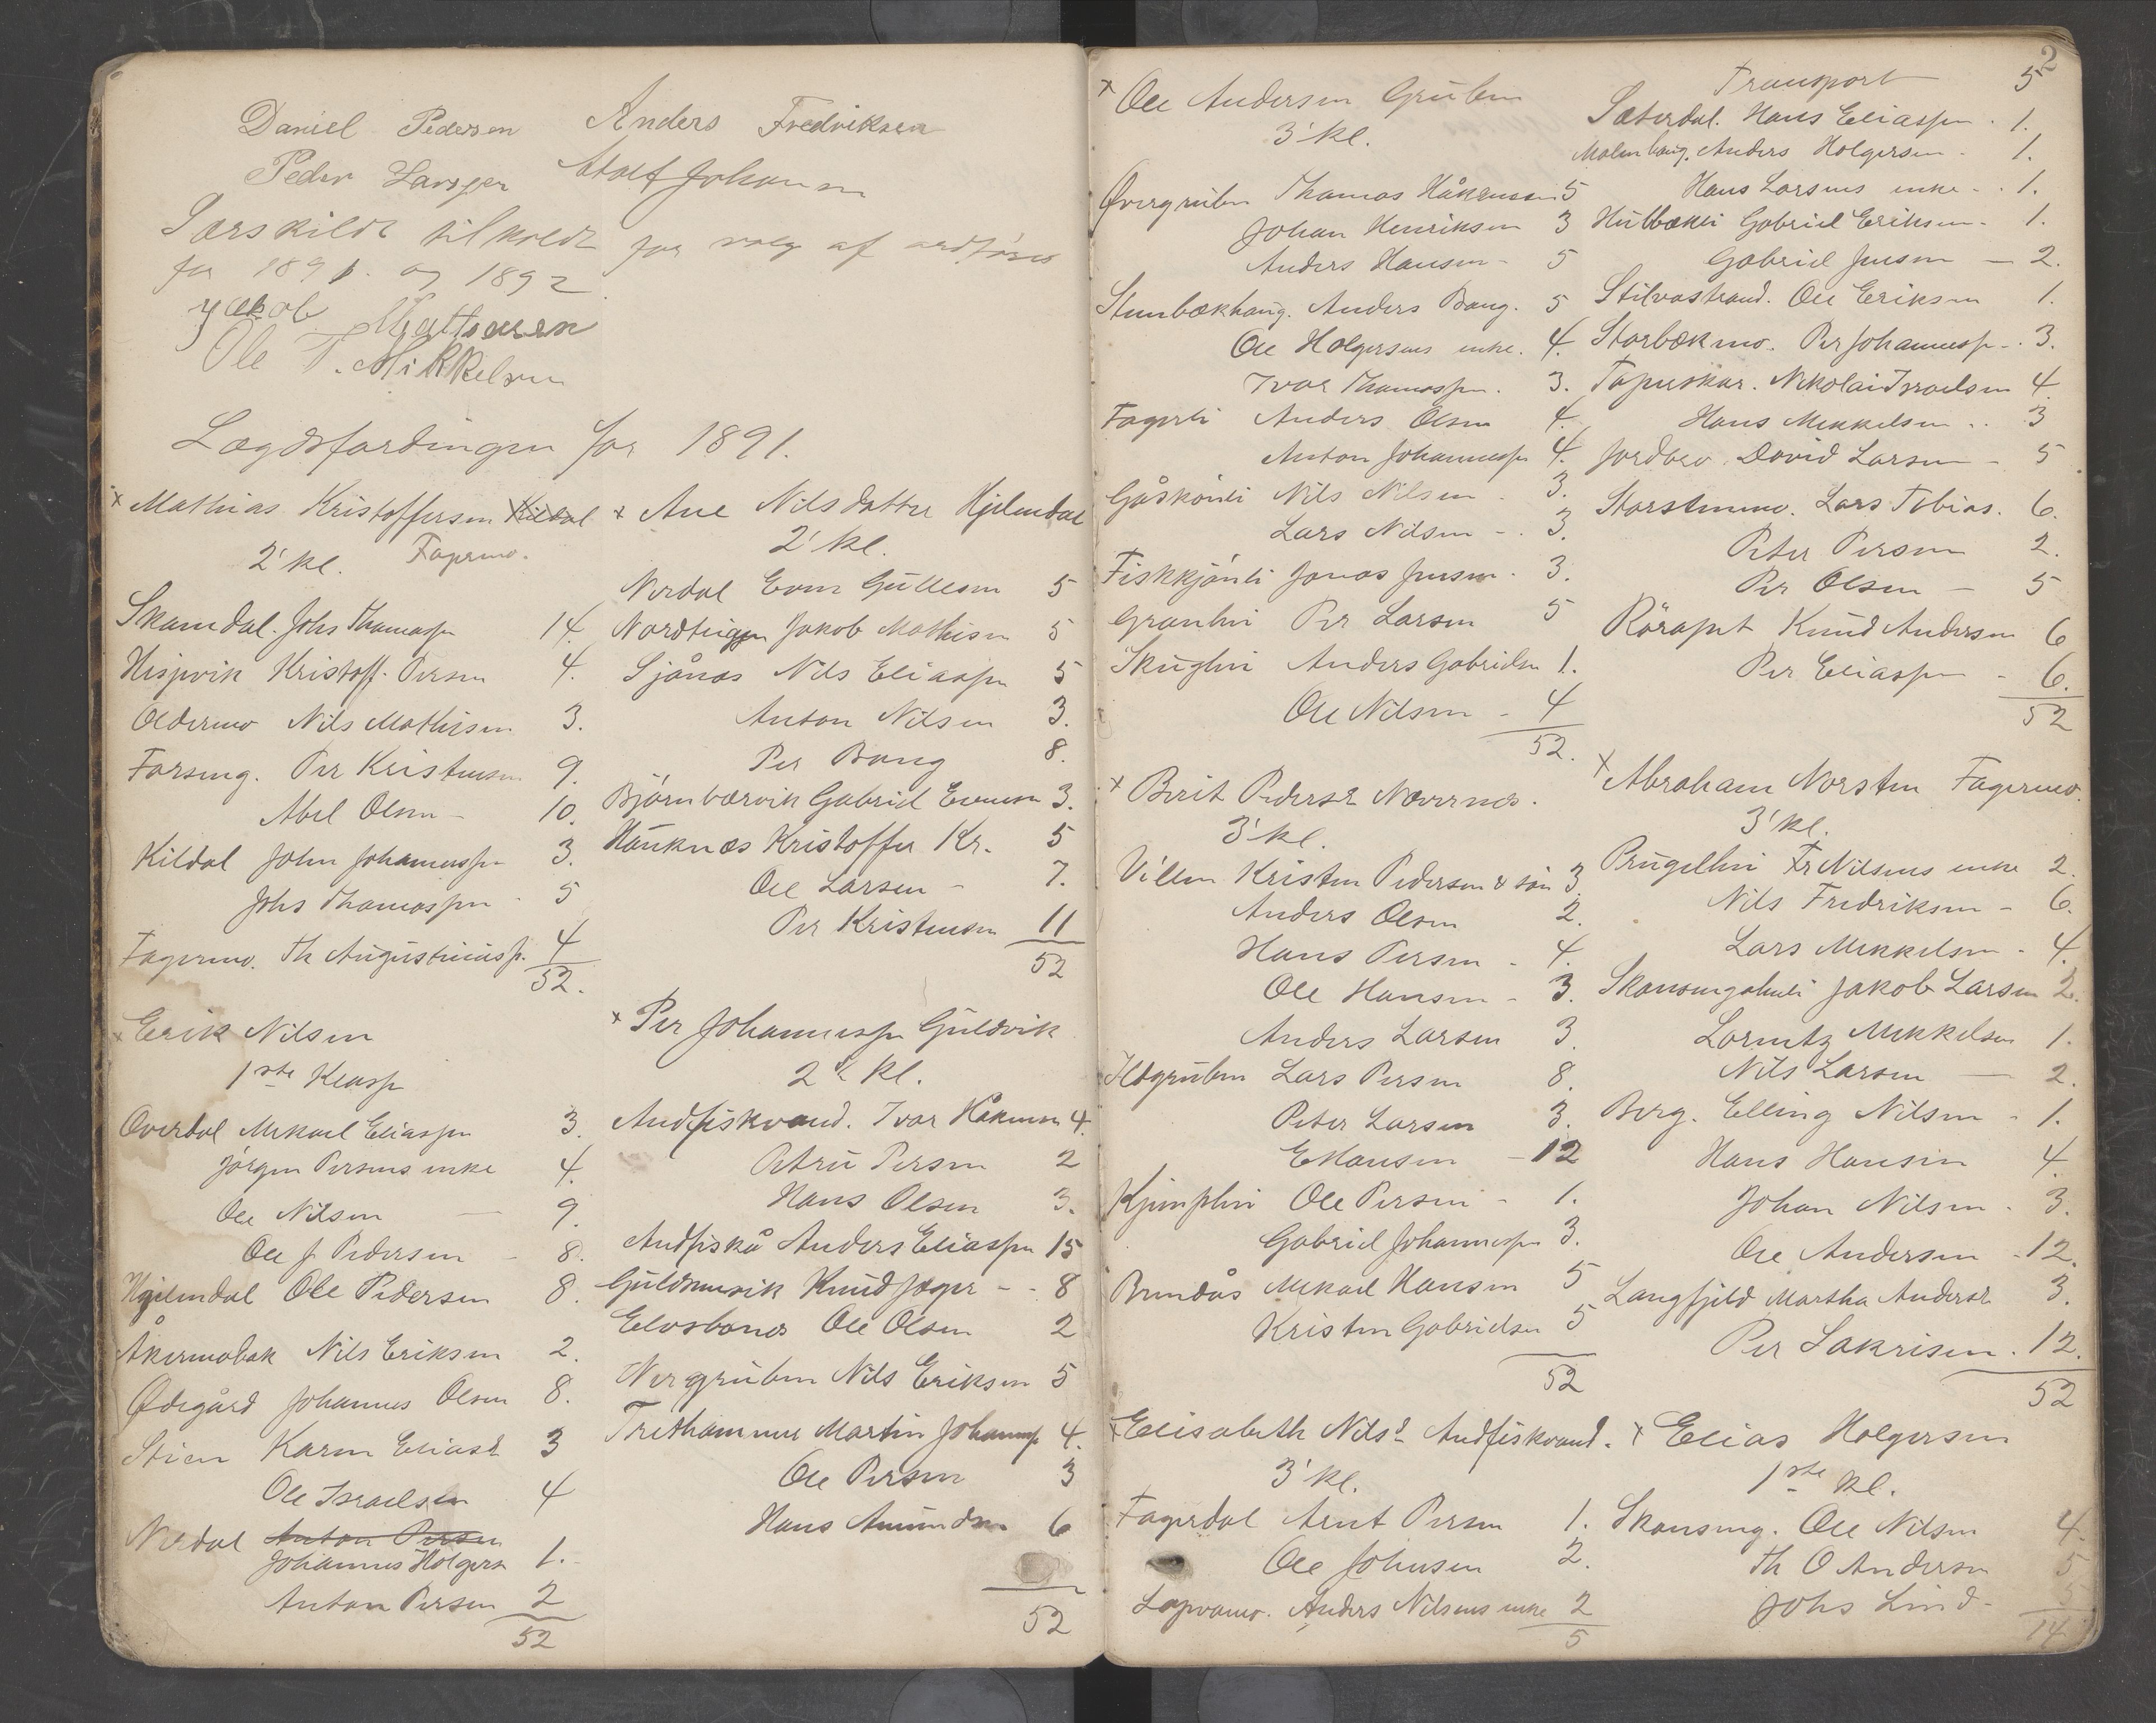 Daniel Pedersen Anders Fredriksen
Peder Adolf Johansen
Særskildt tilkaldt for valg af ordfører
for 1891. og 1892.
Jakob Mattisen
Ole T. Mikkelsen
Lægdsfardingen for 1891.
x Mathias Kristoffersen Kildal
2' kl. Fagermo.
Skamdal. Johs Thomassen 14.
Kristoff. Persen 4.
Oldermo Nils Mathisen 3.
Forsmg. Per Kristensen 9.
Abel Olsen - 10.
Kildal John Johannessen 3.
Johs Thomassen - 5
Fagermo. Th Augustinuss. 4
52.
x Erik Nilsen
1ste Klasse
Overdal Mikael Eliassen 3.
Jørgen Persens enke 4.
Ole Nilsen — 9.
Ole J. Pedersen - 8.
Hjelmdal Ole Pedersen 8.
Åkermobak Nils Eriksen 2.
Ødegård Johannes Olsen 8.
Stien Karen Eliasd 3
Ole Israelsen 4
Nerdal Anton Persen
Johannes Holgers 1.
Anton Persen 2
52
x Ane Nilsdatter Hjelmdal
2' kl.
Nerdal Even Gullesen 5
Jakob Mathisen 5
Sjånas Nils Eliassen 5
Anton Nilsen 3.
Per Bang 8.
Bjørnbærvik Gabriel Evensen 3.
Hauknæs Kristoffer Kr. 5
Ole Larsen - 7.
Per Kristensen 11
52
x Per Johannessen Guldvik
2' kl.
Andfiskvand. Ivar Håkensen 4.
Petru Persen 2
Hans Olsen 3.
Andfiskå Anders Eliassen 15
Knud Jæger - - 8
Ole Olsen 2
Nergruben Nils Eriksen 5
Trethammer Martin Johannes 4.
Ole Persen 3
Hans Amundsen 6
52
2
x Ole Andersen Gruben
3' kl.
Øvergruben Thomas Håkensen 5
Johan Henriksen 3
Anders Hansen - 5
Stenbækhaug. Anders Bang. 5
Ole Holgersens enke. 4.
Ivar Thomassen. 3.
Fagerli Anders Olsen 4.
Anton Johannessen 4.
Gåskönli Nils Nilsen . 3.
Lars Nilsen - . 3.
Fiskkjönli Jonas Jensen . 3.
Granhei Per Larsen 5
Skuglhei Anders Gabrielsen 1.
Ole Nilsen - 4
52.
x Berit Pedersd Nævernes.
3' kl.
Villen Kristen Pedersen & sön 3.
Anders Olsen 2.
Hans Persen - 4.
Ole Hansen - 3.
Anders Larsen 3.
Ildgruben Lars Persen 8.
Peter Larsen 3.
E Hansen - 12
Ole Persen - 1.
Gabriel Johannessen 3.
Brendås Mikael Hansen 5
Kristen Gabrielsen 5
52
x Elisabeth Nilsd Andfiskvand.
3' kl.
Fagerdal Arnt Persen 1.
Ole Johnsen 2.
Anders Nilsens enke 2
5
Transport 5
Sæterdal. Hans Eliassen . 1.
Malmhaug. Anders Holgersen - 1.
Hans Larsens enke - . 1.
Hulbækli Gabriel Eriksen - 1.
Gabriel Jensen — 2.
Stilvastrand. Ole Eriksen 1.
Storbækmo. Per Johanness - . 3.
Tapuskar. Nikolai Israelsen 4.
Hans Mikkelsen . . 3
Jordbro David Larsen - 5
Storstenmo. Lars Tobias. 6.
Peter Persen 2.
Per Olsen - 5
Knud Andersen 6
Per Eliassen - 6.
52
x Abraham Norsten Fagermo.
3' kl.
Fr Nilsens enke 2.
Nils Fredriksen - 6.
Lars Mikkelsen - 4.
Jakob Larsen 2.
Lorentz Mikkelsen 1.
Nils Larsen — 2.
Berg. Elling Nilsen - 1.
Hans Hansen 4.
Johan Nilsen . 3.
Ole Andersen - 12.
Langfjeld Martha Andersd 3.
Per Sakrisen . 12.
52
x Elias Holgersen
1ste kl.
Skonseng. Ole Nilsen 4.
Th O Andersen 5
Johs Lind - 5
14